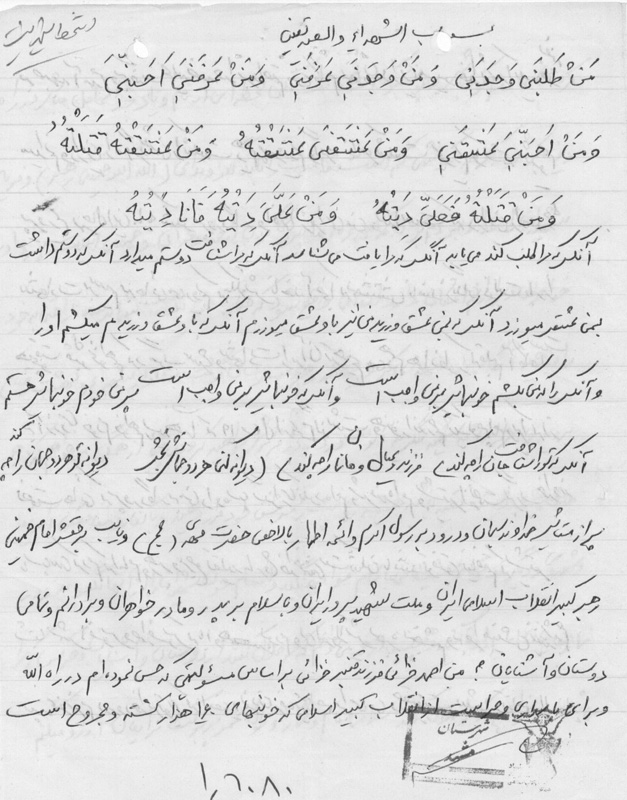 بسم رب الشهداء والصدیقین
مَنْ طَلَبَنی وَجَدَنی وَمَنْ وَجَدَنی عَرَفَنی وَمَنْ عَرَفَنی اَحَبَّنی
وَمَنْ اَحَبَّنی عَشَقَنی وَمَنْ عَشَقَنی عَشَقْتُهُ وَمَنْ عَشَقْتُهُ قَتَلْتُهُ
وَمَنْ قَتَلْتُهُ فَعَلَیَّ دِیَتُهُ وَمَنْ عَلَیَّ دِیَتُهُ فَاَنَا دِیَتُهُ
آنکس که مرا طلب کند می یابد آنکس که مرا یافت می شناسد آنکس که مرا شناخت دوستم میدارد آنکس که دوستم داشت
بمن عشق میورزد آنکس که بمن عشق ورزید من نیز با او عشق میورزم آنکس که با او عشق ورزیدم میکشم او را
و آنکس را که من بکشم خونبهایش بر من واجب است و آنکس که خونبهایش بر من واجب است پس من خودم خونبهایش هستم
آنکس که تو را شناخت جان را چه کند فرزند و عیال و خانمان را چه کند (دیوانه کنی هر دو جهانش بخشی دیوانه تو هر دو جهان را چه کند
پس از ستایش خداوند سبحان و درود بر رسول اکرم و ائمه اطهار بالاخص حضرت مهدی (عج) و نایب برحقش امام خمینی
رهبر کبیر انقلاب اسلامی ایران و ملت شهید پرور ایران و با سلام بر پدر و مادر خواهران و برادرانم و تمامی
دوستان و آشنایان ؛ من احمد خزائی فرزند خزائی بر اساس مسئولیتی که حس نموده ام در راه الله
و برای پاسداری و حراست از انقلاب کبیر اسلامی که خونبهای هزار کشته و مجروح است
شهرستان
مشهد
۱٫۶۰۸۰